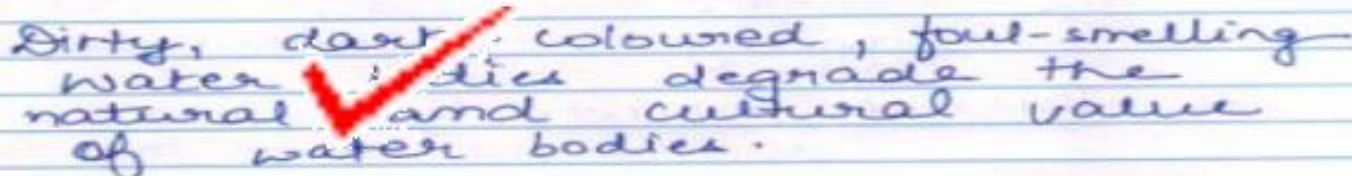 Dirty, dark coloured, foul-smelling
water bodies degrade the
natural and cultural value
of water bodies.